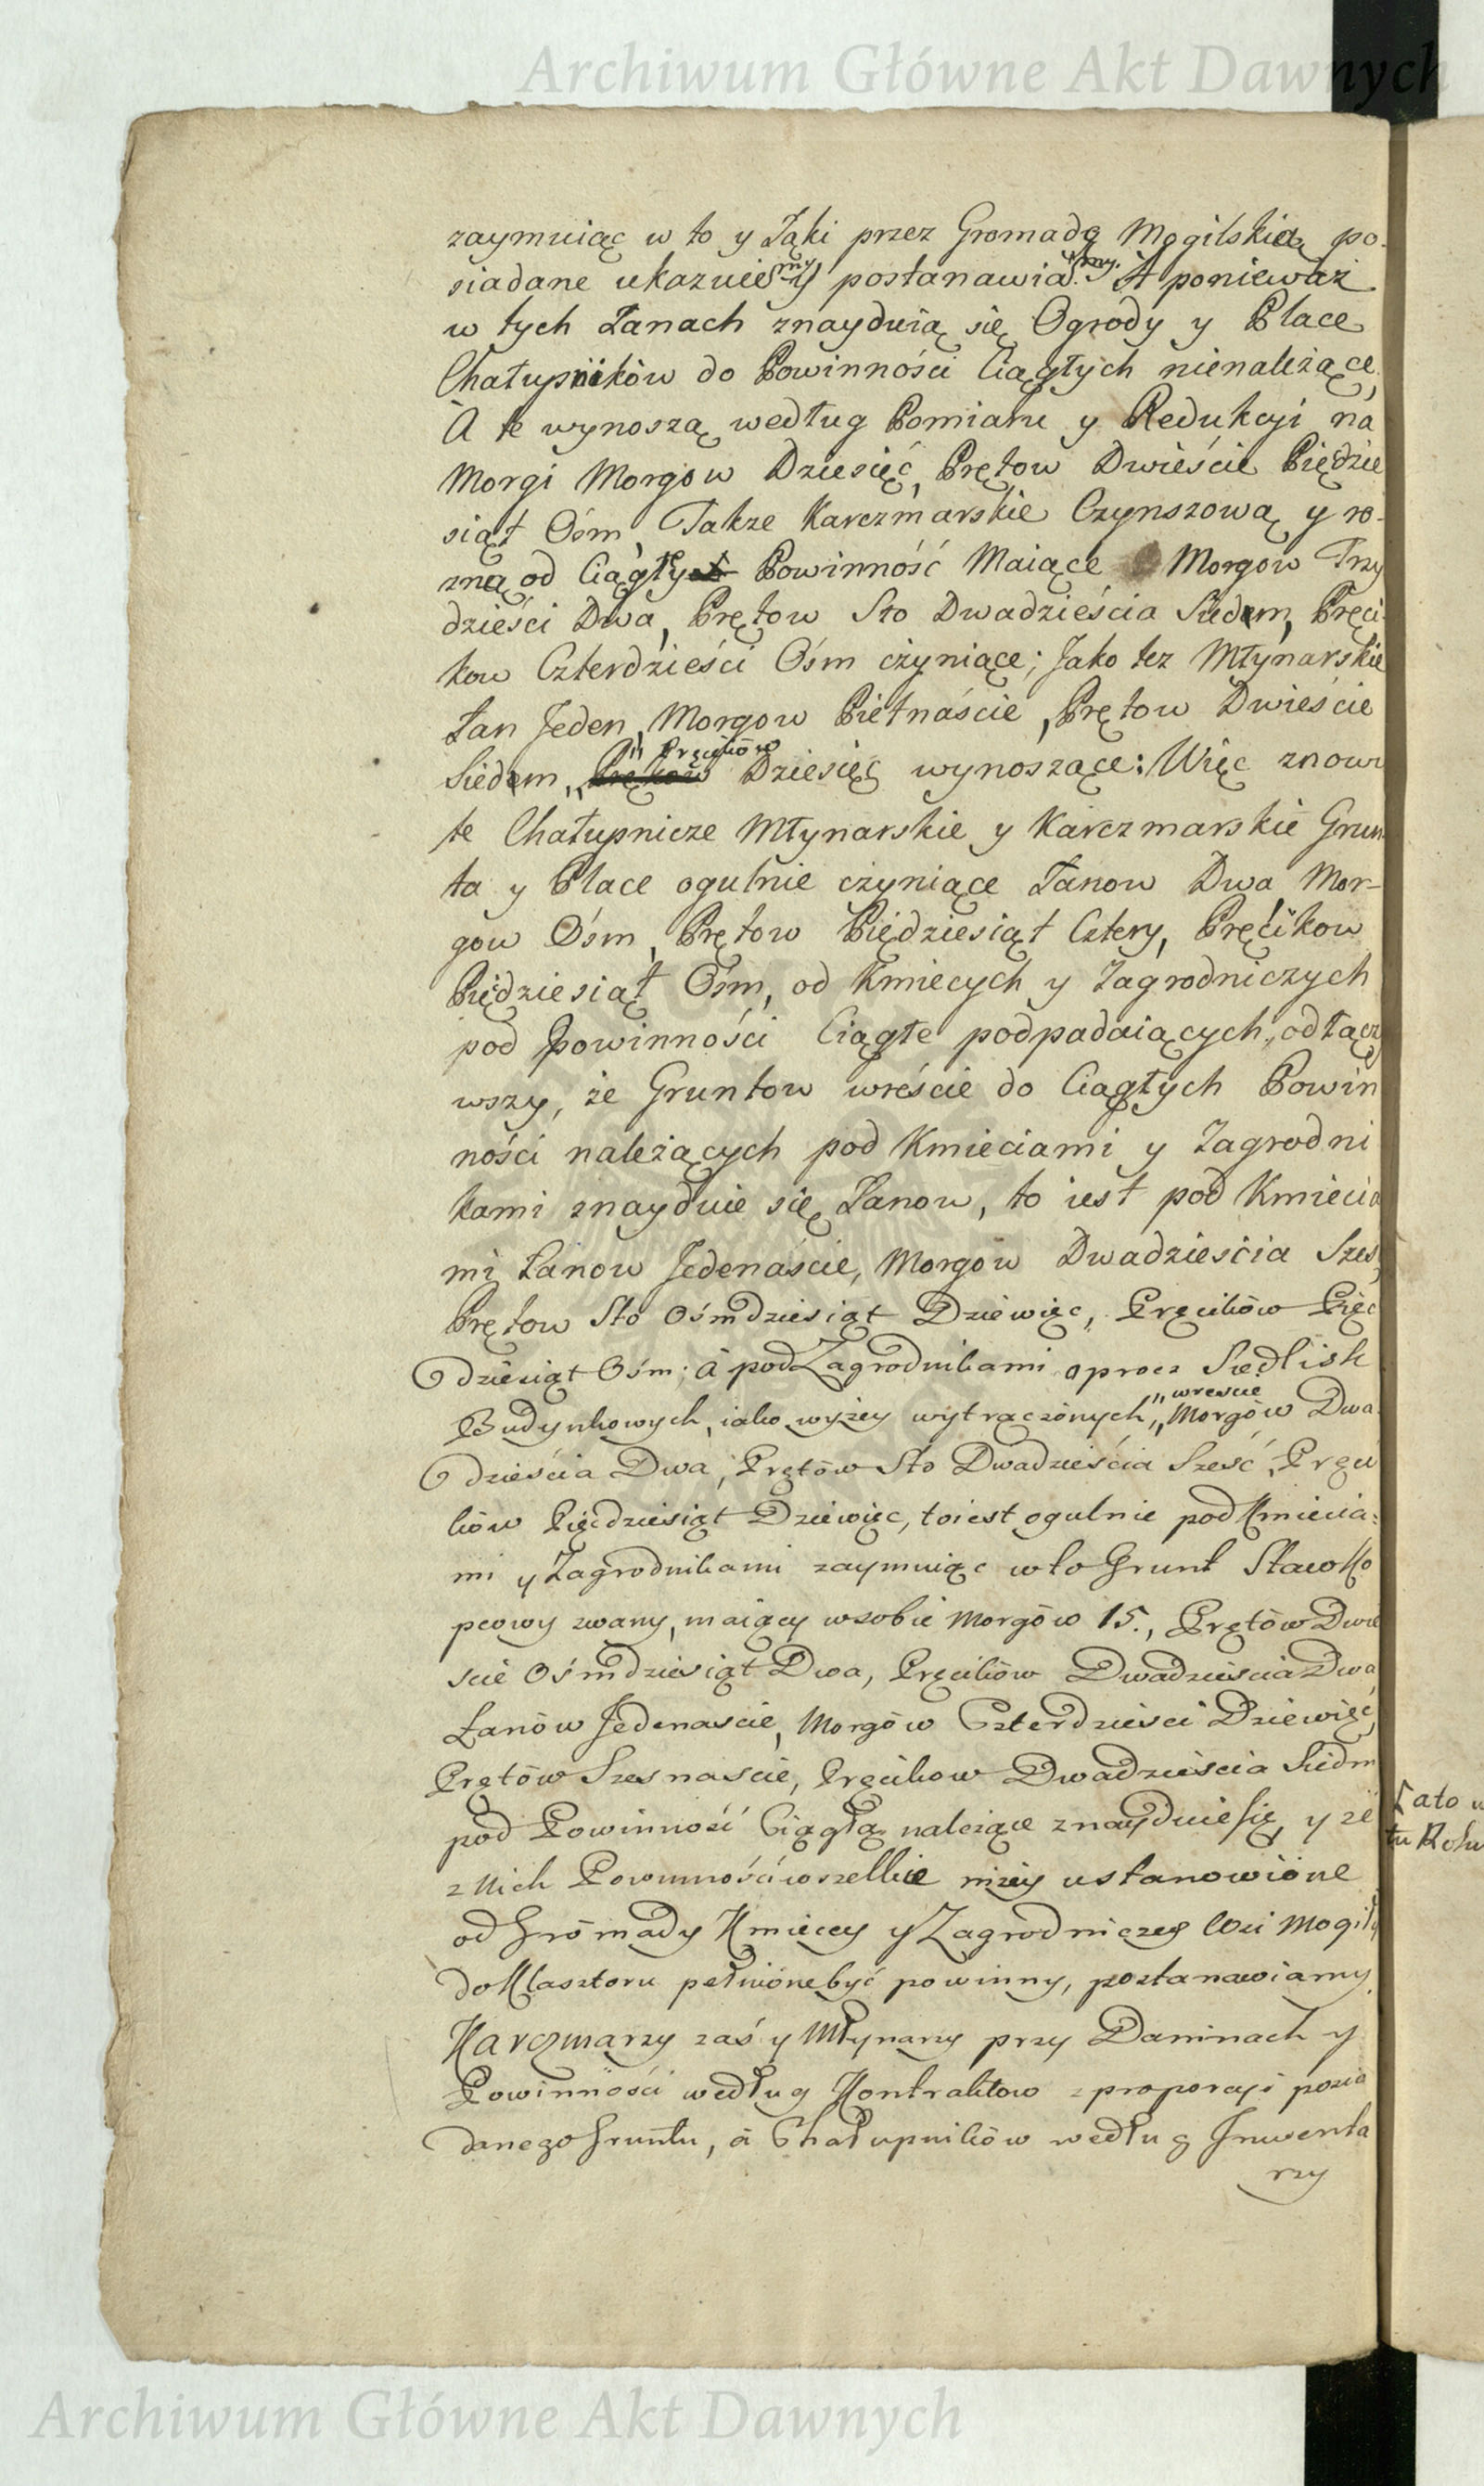 Archiwum Główne Akt Dawnych
zaymuiąc w to y Łąki przez Gromadę Mogilską po-
siadane ukazuiemy y postanawiamy. A ponieważ
w tych Łanach znayduią się Ogrody y Place
Chałupników do Powinności Ciągłych nienależące,
A te wynoszą według Pomiaru y Redukcyi na
Morgi Morgow Dziesięć, Prętow Dwieście Pięćdzie
siąt Ośm, Takze Karczmarskie Czynszową y ro-
zną od Ciągły Powinność Maiące Morgow Trzy
dzieści Dwa, Prętow Sto Dwadzieścia Siedem, Pręci
kow Czterdzieści Ośm czyniące; Jako tez Młynarskie
Łan Jeden, Morgow Pietnaście, Prętow Dwieście
Siedem, Pręcików Dziesięć wynoszące: Więc znowu
te Chałupnicze Młynarskie y Karczmarskie Grun
ta y Place ogulnie czyniące Łanow Dwa Mor-
gow Ośm, Prętow Pięćdziesiąt Cztery, Pręcikow
Pięćdziesiąt Ośm, od Kmiecych y Zagrodniczych
pod Powinności Ciągłe podpadaiących, odłącz
wszy, że Gruntow wreście do Ciągłych Powin
ności należących pod Kmieciami y Zagrodni
kami znayduie się Łanow, to iest pod Kmiecia
mi Łanow Jedenaście, Morgow Dwadzieścia Szes
Prętow Sto Ośmdziesiąt Dziewięc, Pręcików Pięc
dziesiąt Ośm; à pod Zagrodnikami oprocz Siedlisk
Budynkowych, iako wyżey wytrączonych, wrescie Morgów Dwa
dzieścia Dwa, Prętów Sto Dwadzieścia Sześć, Pręci
ków Pięcdziesiąt Dziewięc, toiest ogulnie pod Kmiecia:
mi y Zagrodnikami zaymuiąc wto Grunt Staw Ko
pcowy zwany, maiący wsobie Morgów 15., Prętów Dwie
scie Ośmdziesiąt Dwa, Pręcików Dwadzieścia Dwa,
Łanów Jedenascie, Morgów Czterdzieści Dziewięć,
Prętów Szesnascie, Pręcikow Dwadzieścia Siedm
pod Powinność Ciągłą należące znayduie się, y że
z Nich Powinności wszelkie niżey ustanowione
od Gromady Kmiecey y Zagrodniczey Wsi Mogiły
do Klasztoru pełnione być powinny, postanawiamy.
Karczmarzy zaś y Młynarzy przy Daninach y
Powinności według Kontraktow z proporcyi posia
danego Gruntu, à Chałupników według Inwenta
rzy
Łato w
tu Roku
Archiwum Główne Akt Dawnych